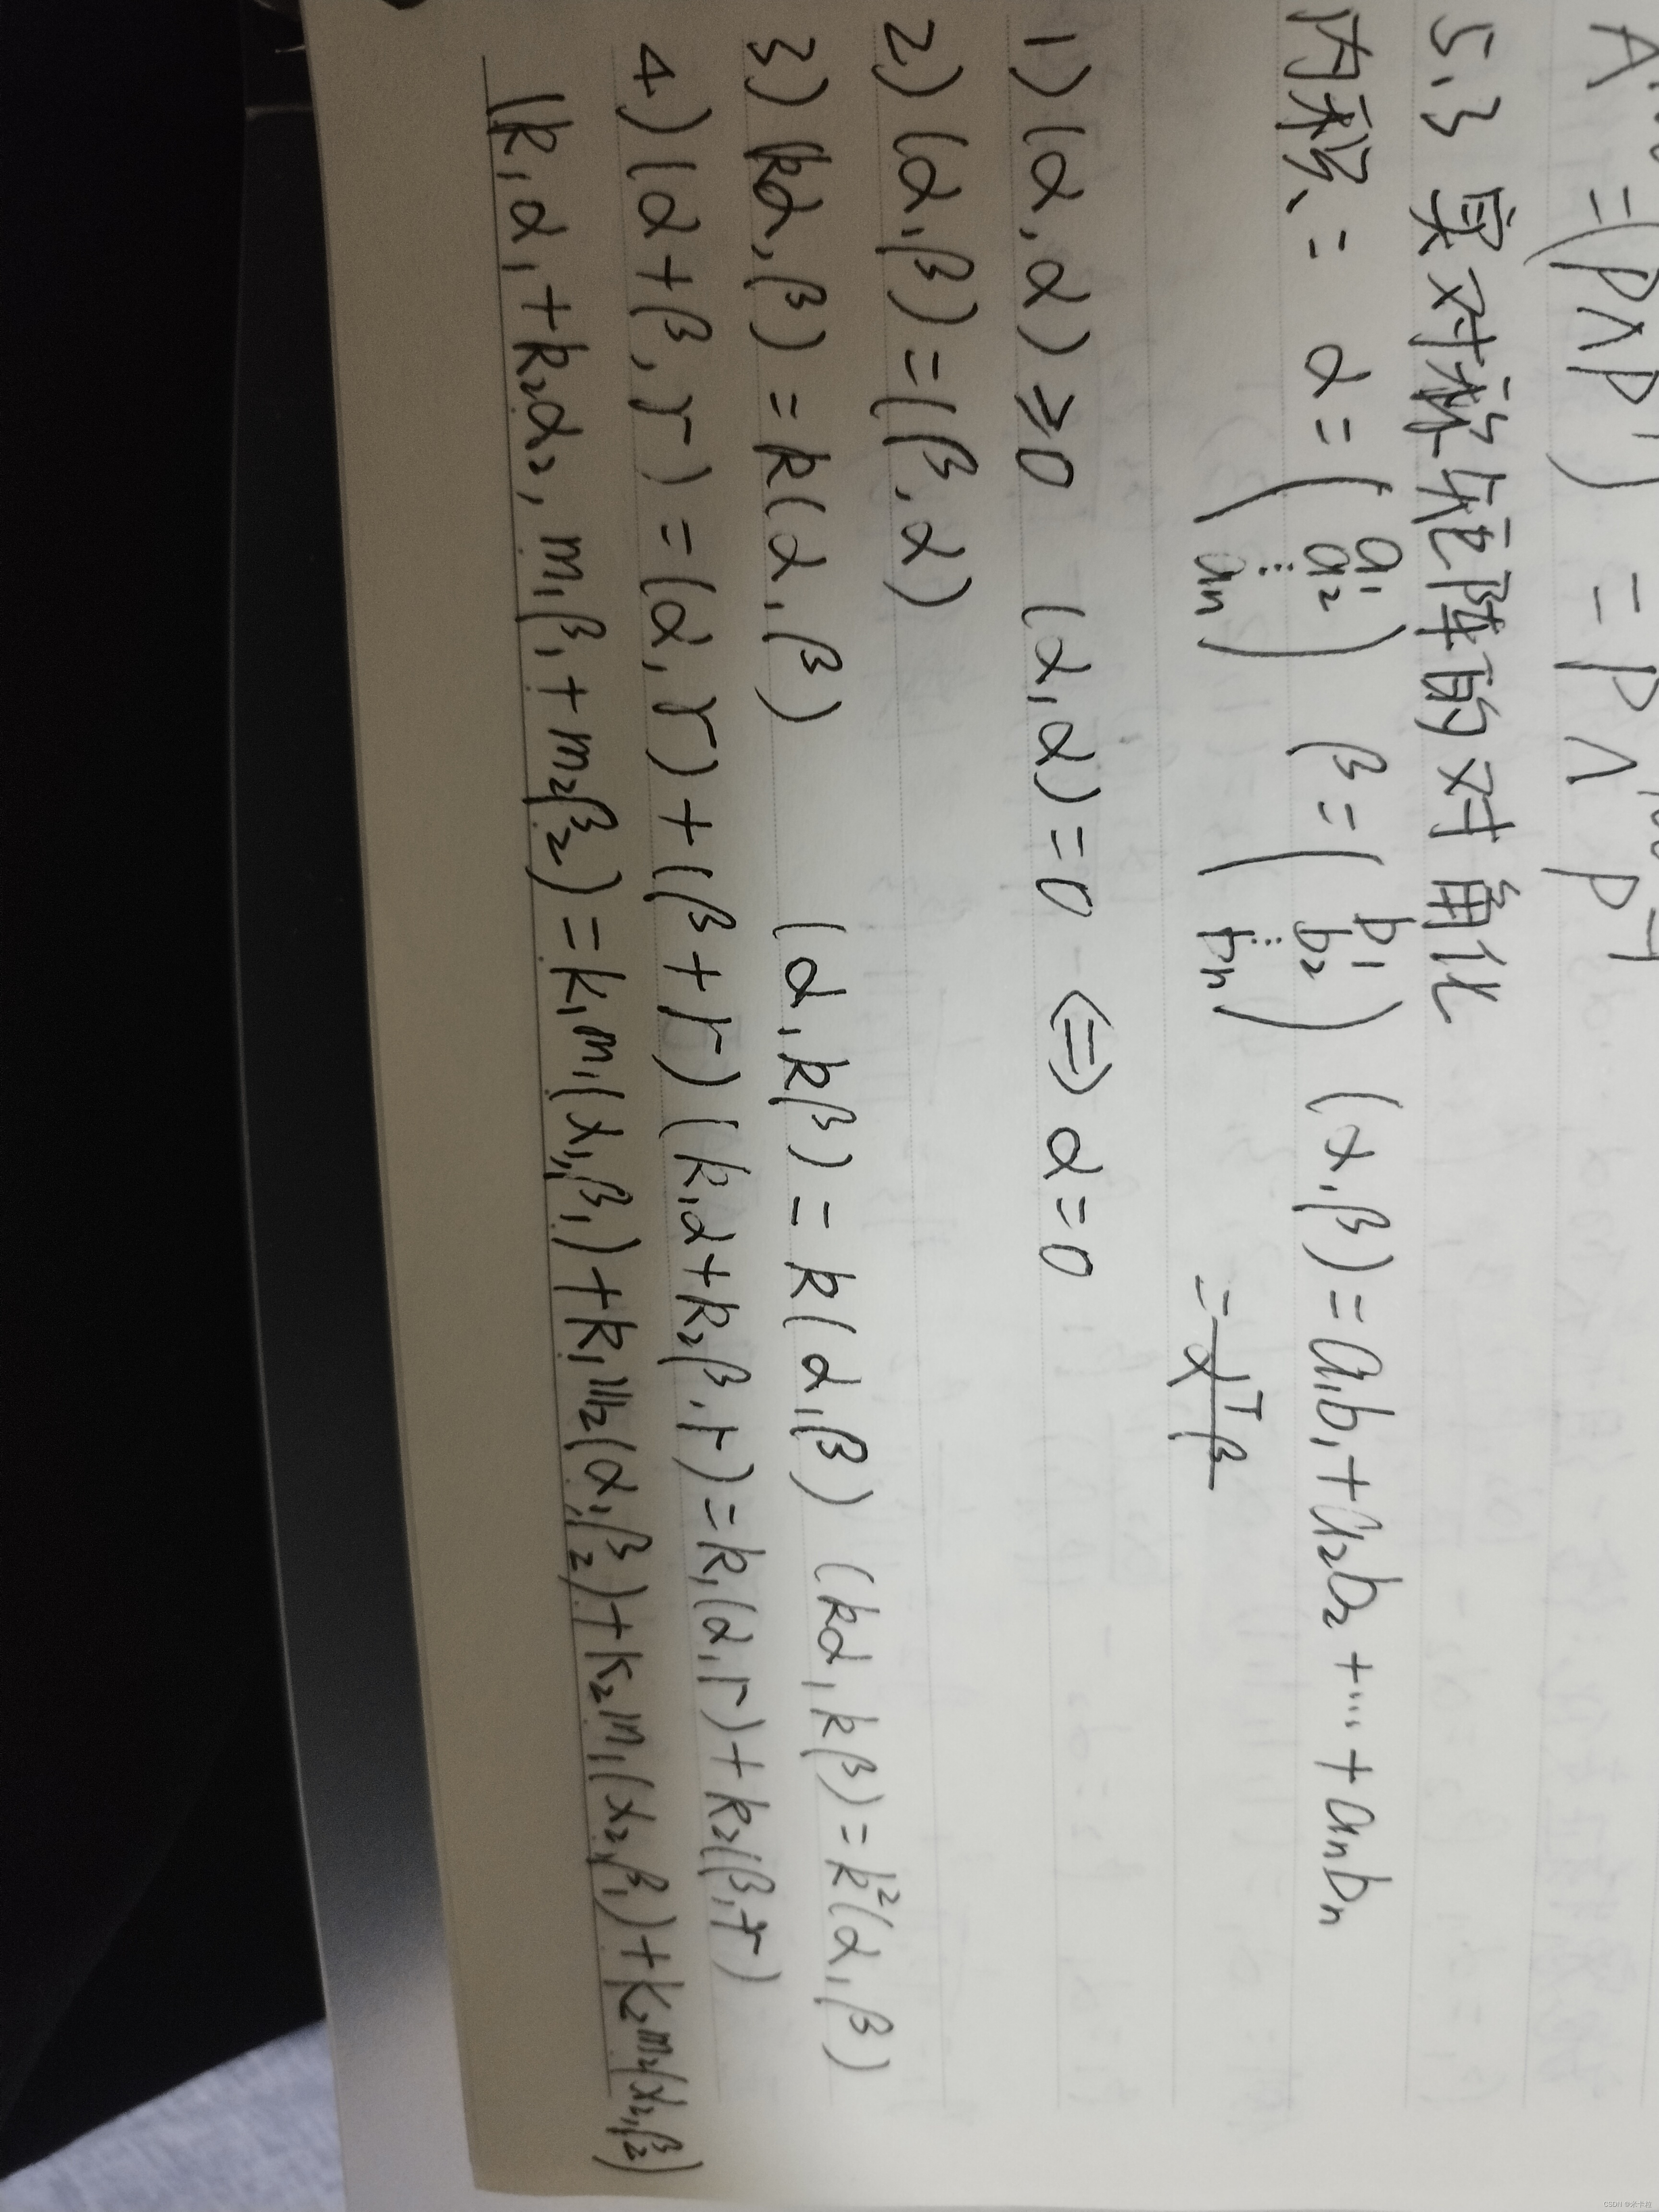 =(PΛP⁻¹) = PΛᵐP⁻¹
5.3 实对称矩阵的对角化
内积: α=(a₁ a₂ ⋮ aₙ) β=(b₁ b₂ ⋮ bₙ) (α,β)=a₁b₁+a₂b₂+…+aₙbₙ
=αᵀβ
1) (α,α)≥0 (α,α)=0 ⇔ α=0
2) (α,β)=(β,α)
3) (kα,β)=k(α,β) (α,kβ)=k(α,β) (kα,kβ)=k²(α,β)
4) (α+β,r)=(α,r)+(β+r) (k₁α+k₂β,r)=k₁(α,r)+k₂(β,r)
(k₁α₁+k₂α₂,m₁β₁+m₂β₂)=k₁m₁(α₁,β₁)+k₁m₂(α₁,β₂)+k₂m₁(α₂,β₁)+k₂m₂(α₂,β₂)
CSDN @米卡粒